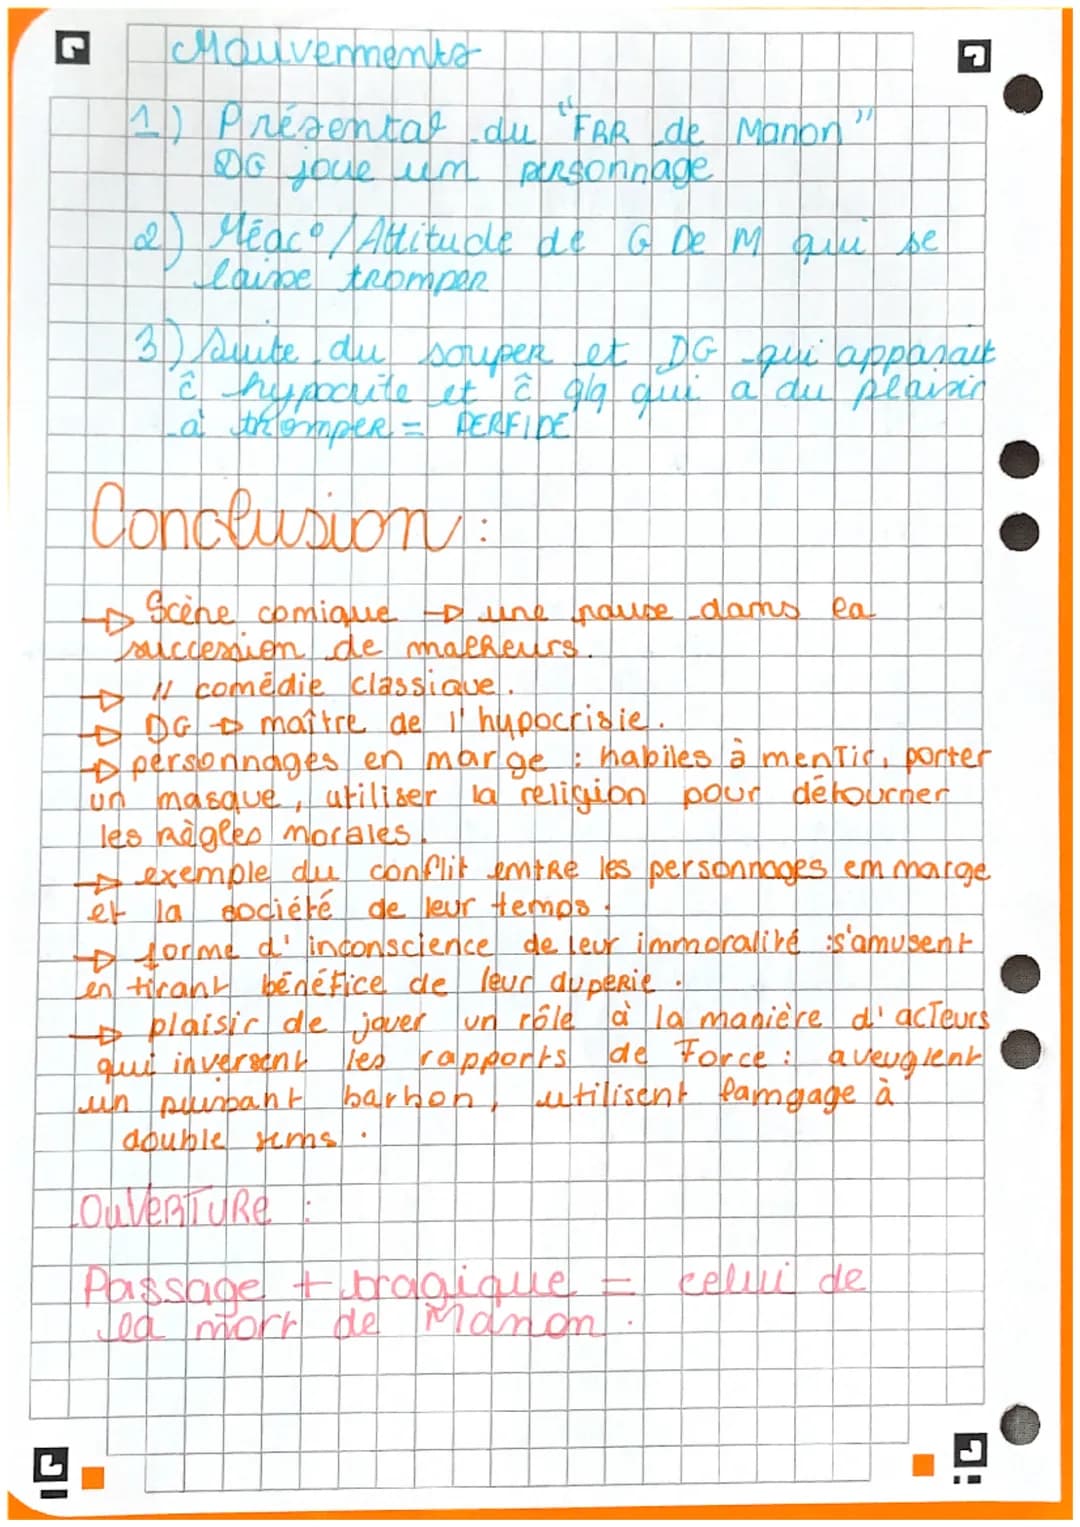 Mouvements
1) Présentat° du "FRR de Manon"
DG joue un personnage
2) Réac°/Attitude de G De M qui se
laisse tromper
3) Suite du souper et DG qui apparait
ĉ hypocrite et ĉ qlq qui a du plaisir
à tromper = PERFIDE
Conclusion :
→ Scène comique → une pause dans la
succession de malheurs.
→ // comédie classique.
→ DG → maître de l'hypocrisie.
→ personnages en marge : habiles à mentir, porter
un masque, utiliser la religion pour détourner
les règles morales.
→ exemple du conflit entre les personnages en marge
et la société de leur temps.
→ forme d'inconscience de leur immoralité : s'amusent
en tirant bénéfice de leur duperie.
→ plaisir de jouer un rôle à la manière d'acteurs
qui inversent les rapports de force : aveuglent
un puissant barbon, utilisent langage à
double sens.
OUVERTURE :
Passage + tragique = celui de
la mort de Manon.